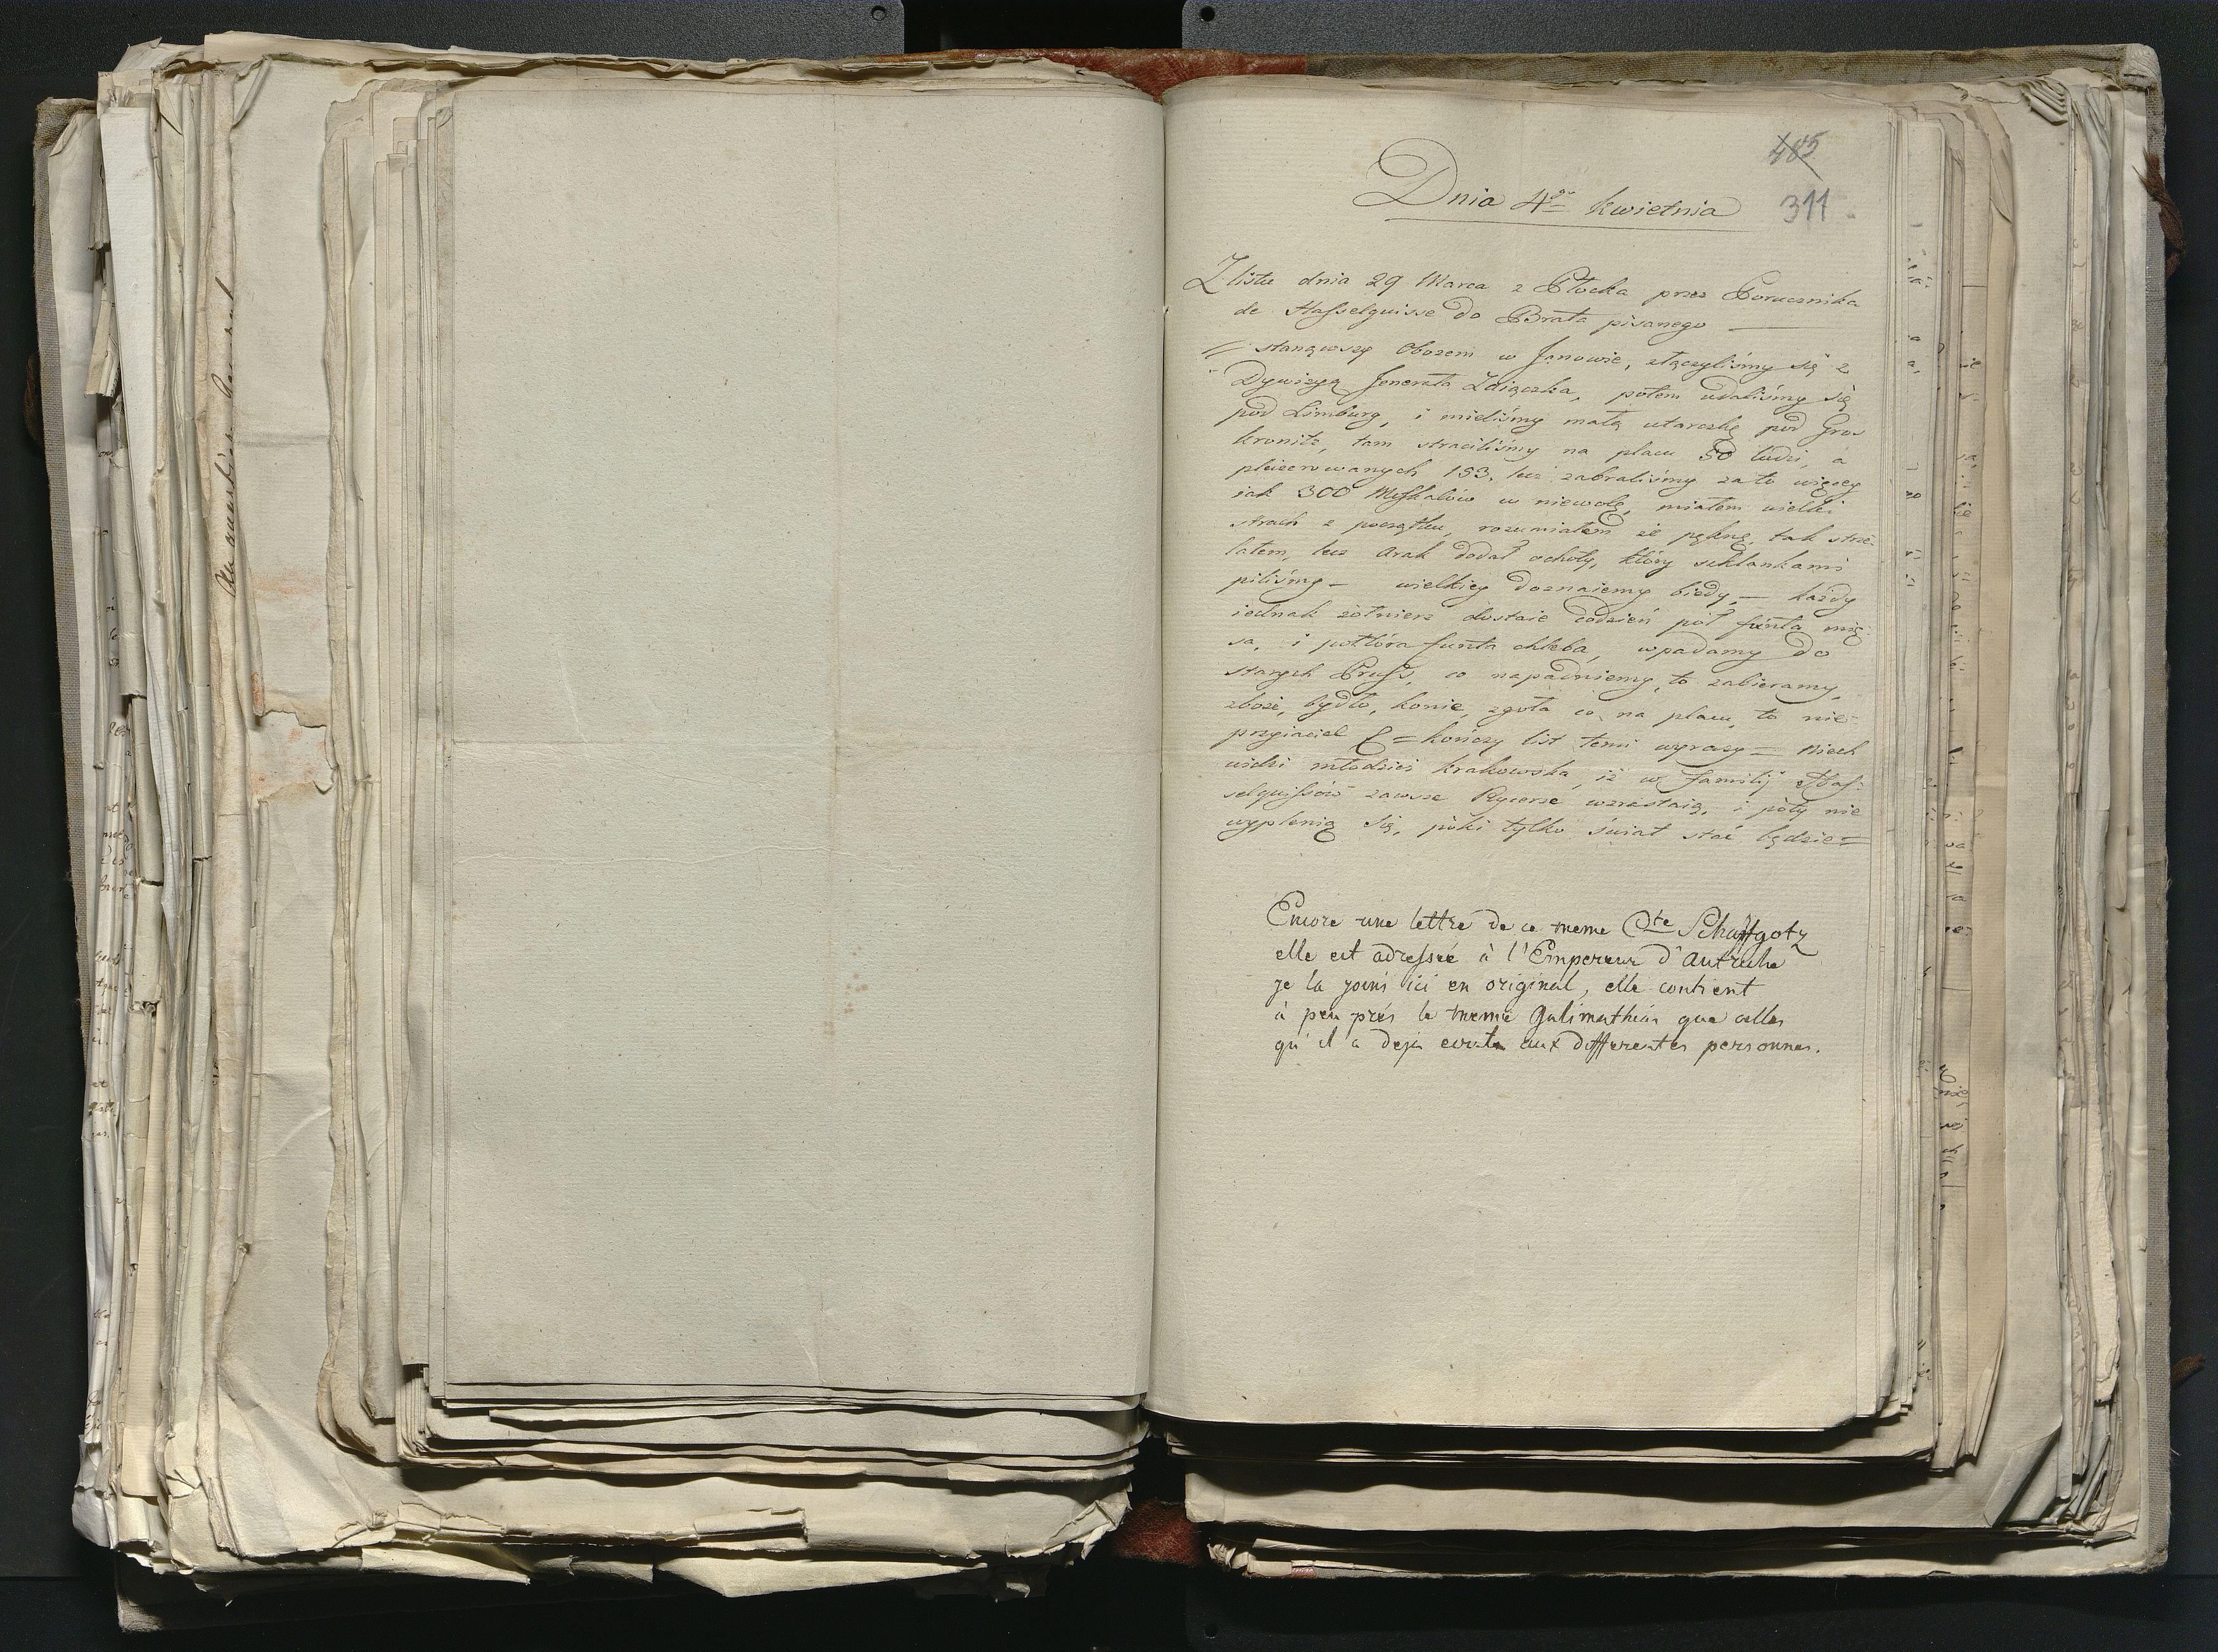 485
311
Dnia 4go kwietnia
Z listu dnia 29 Marca z Płocka przez Porucznika
de Hasselquisse do Brata pisanego —
stanąwszy Obozem w Janowie, złączyliśmy się z
Dywizyą Jenerała Zaiączka, potem udaliśmy się
pod Limburg, i mieliśmy małą utarczkę pod Gros
kronitz, tam straciliśmy na placu 50 ludzi, a
pleizerowanych 153, lecz zabraliśmy za to więcey
iak 300 Moskalów w niewolę, miałem wielki
strach z początku, rozumiałem że pęknę, tak strze-
lałem, lecz Arak dodał ochoty, który szklankami
piliśmy — wielkiey doznaiemy biedy, — każdy
iednak żołnierz dostaie codzień pół funta mię-
sa, i półtora funta chleba, wpadamy do
starych Pruss, co napadniemy, to zabieramy,
zboże, bydło, konie, zgoła co na placu, to nie-
przyiaciel = kończy list temi wyrazy = Niech
widzi młodzież krakowska, iż w familij Has-
selquissów zawsze Rycerze wzrastaią, i póty nie
wyplenią się, póki tylko świat stać będzie =
Encore une lettre de ce meme Cte Schaffgotz
elle est adressée à l'Empereur d'Autriche
je la joins ici en original, elle contient
à peu près le meme Galimathias que celles
qu'il a deja ecrit aux differentes personnes.